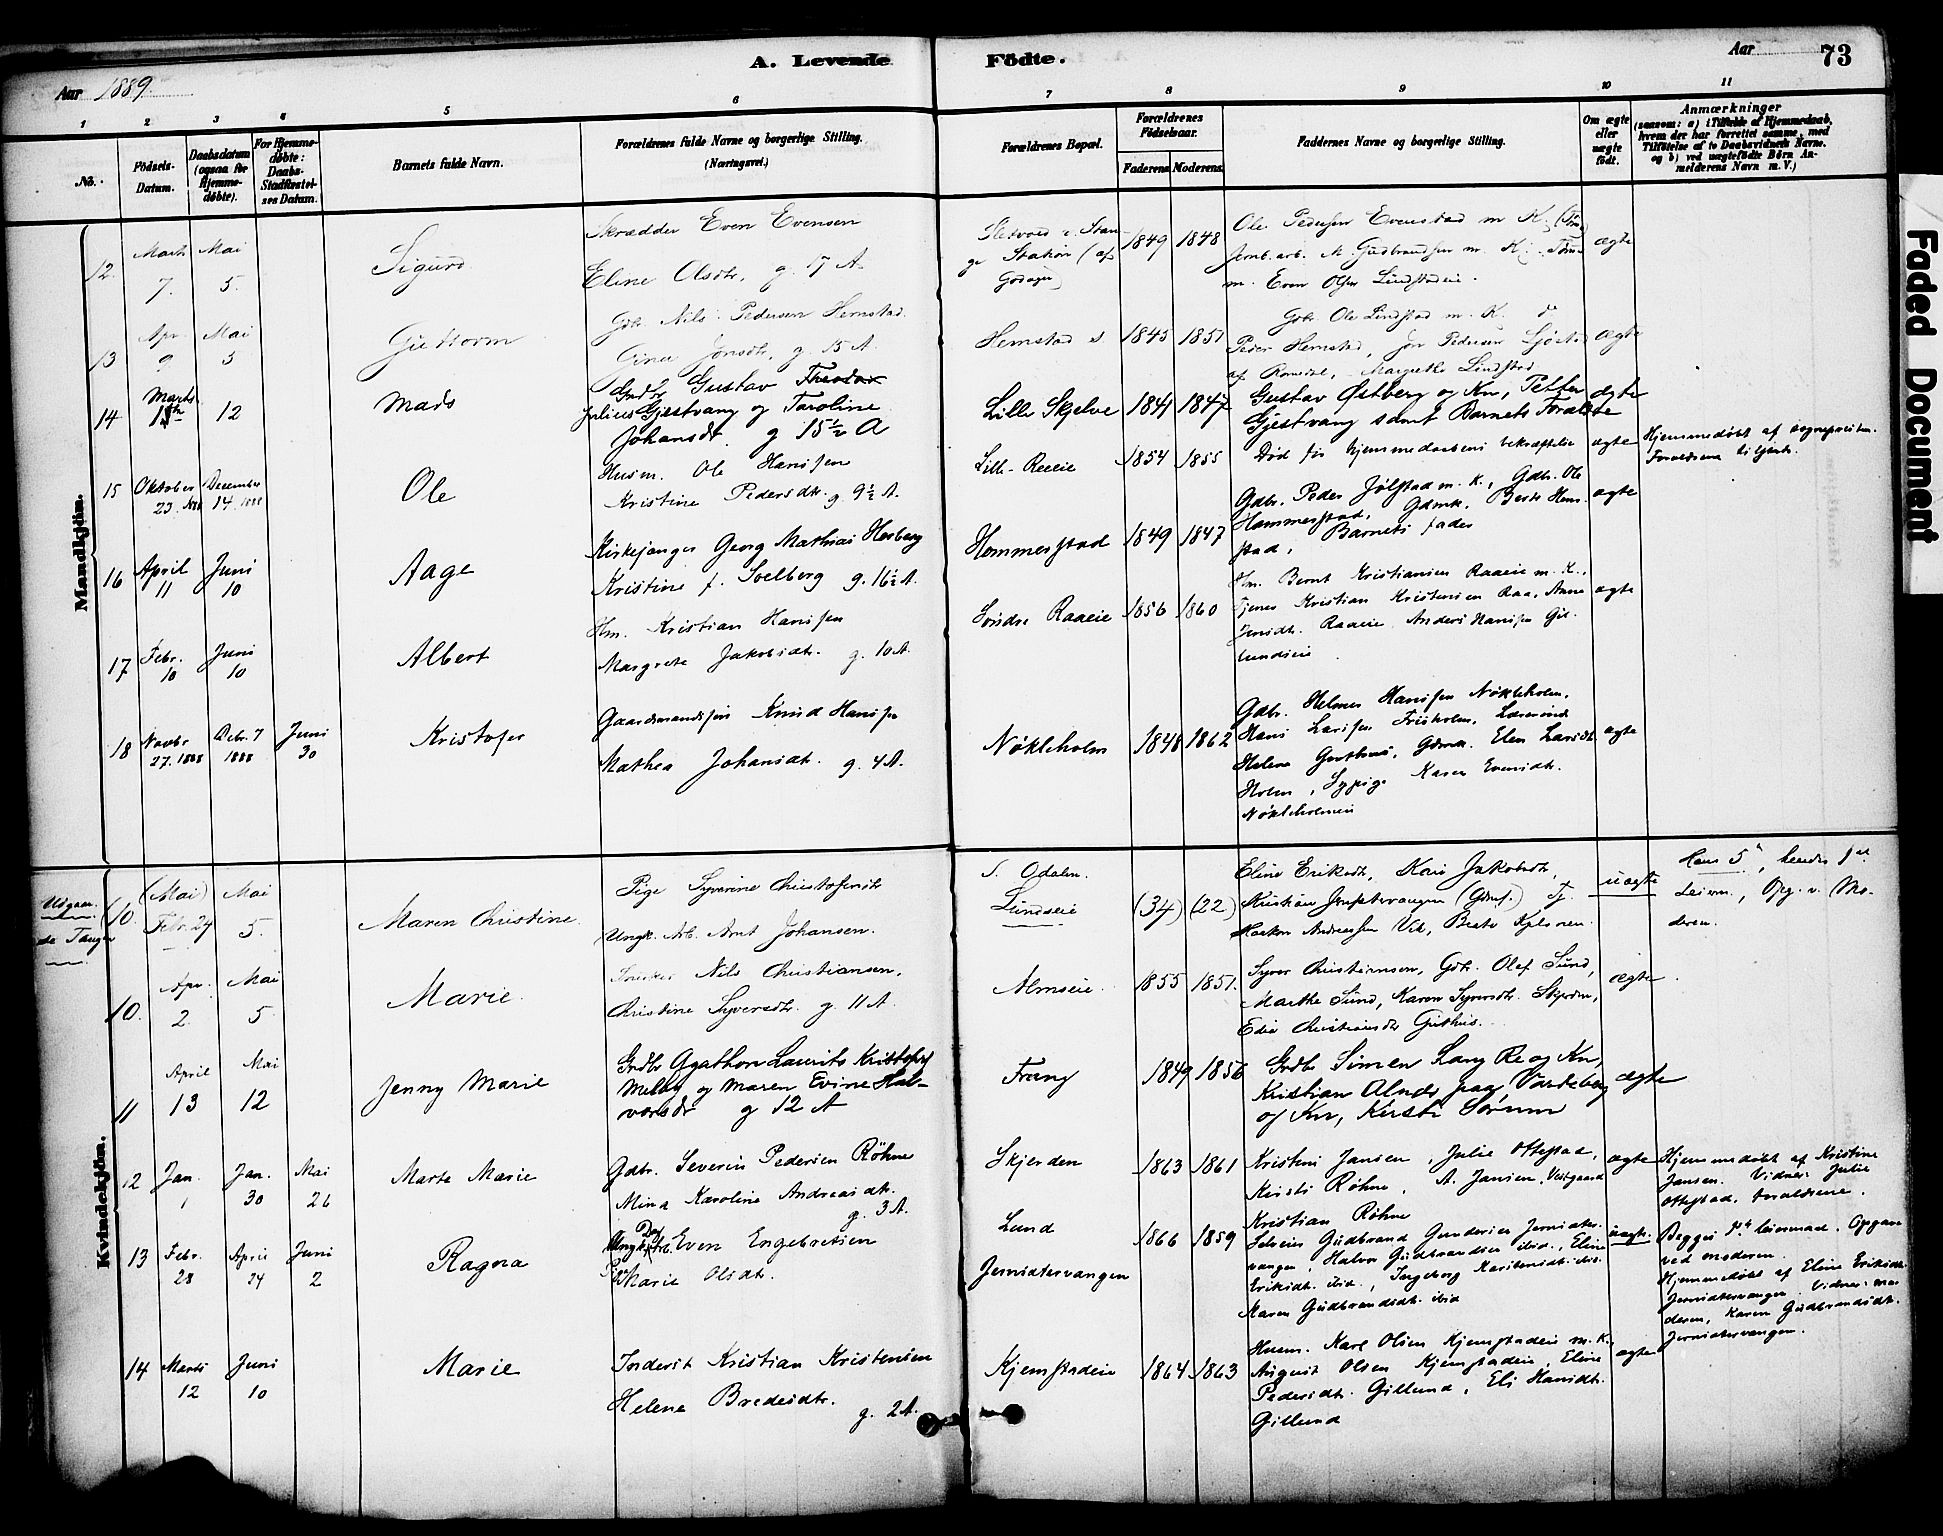 A. Levende Födte.
Aar 1889.
Aar 73
1 2 3 4 5 6 7 8 9 10 11
No.
Födsels-Datum.
Daabsdatum (ogsaa for Hjemme-döbte).
For Hjemme-döbte: Daabs-Stadfæstel-ses Datum.
Barnets fulde Navn.
Forældrenes fulde Navne og borgerlige Stilling.
(Næringsvei.)
Forældrenes Bopæl.
Forældrenes Födselsaar.
Faderens Moderens
Faddernes Navne og borgerlige Stilling.
Om ægte eller uægte födt.
Anmærkninger
(saasom: a) i Tilfælde af Hjemmedaab, hvem der har forrettet samme, med Tilföielse af to Daabsvidners Navne. og b) ved uægtefödte Börn An-melderens Navn m. V.)
Mandkjön.
12. Marts 7. Mai 5. Sigurd
Skrædder Even Evensen
Eline Olsdtr. g. 17 A.
Station (af
1849 1848
Ole Pedersen Evenstad m K.
m. Even Olsen Lindstadeie.
ægte
13 Apr. 9 Mai 5 Guttorm
Gdbr. Nils Pedersen Hemstad.
Jonsdtr. g. 15 A.
Hemstad s 1845 1851
Gdbr. Ole Lindstad m. K.
Peder Hemstad, Jon Pedersen
af Romedal, Margrethe Lindstad
ægte
14 Marts 12 Mads
Grdbr Gustav Theodor
Julius Gjestvang og Karoline
Johansdr. g 15½ A
Lille Skjelve 1841 1847
Gustav Østberg og Kn, Petter
Gjestvang samt Barnets Forældre
ægte
15 Oktober 23. 1888 December 14 1888 Ole
Husm. Ole Hansen
Kristine Pedersdtr. g. 9½ A.
Lille-Reeeie 1854 1855
Död før hjemmedaabens bekræftelse
ægte
Hjemmedöbt af sognepresten.
Forældrene tilstede.
16 April 11 Juni 10 Aage
Kirkesanger Georg Mathias Hesberg
Kristine f. Soelberg g. 16½ A.
Hommerstad 1849 1847
Gdbr. Peder Jølstad m. K., Gdbr. Ole
Hammerstad, Gdmk. Berte Hem-
stad, Barnets fader
ægte
17 Febr. 10 Juni 10 Albert
Hm. Kristian Hansen
Margrete Jakobsdtr. g. 10 A.
Søndre Raaeie 1856 1860
Hm. Bernt Kristiansen Raaeie m. K.,
Tjener Kristian Kristensen Raa, Anne
Jensdtr. Raaeie, Anders Hansen Gil-
lundseie
ægte
18 Novbr. 27. 1888 Debr. 7 1888 Juni 30 Kristofer
Gaardmandssøn Knud Hansen
Mathea Johansdtr. g. 4 A.
Nøkleholm 1848 1862
Gdbr. Helmer Hansen Nøkleholm,
Hans Larsen Friisholm, Lærerinde
Helene Guthus, Gdmk. Elen Larsdtr.
Holm, Sypige Karen Evensdtr.
Nøkleholmeie
ægte
Kvindekjön.
Udgaar.
se Tangen
10. (Mai) Febr. 24 Mai 5. Maren Christine.
Pige Syverine Christofersdtr
Ungk. Arb. Arnt Johansen.
S. Odalen.
Lundseie (34) (22)
Eline Eriksdtr, Kari Jakobsdtr,
Haakon Andreassen Vik, Beate
uægte
Hans 5te, hendes 1ste
Leierm., Opg. v. Mo-
deren.
10. Apr. 2. Mai 5 Marie.
Snedker Nils Christiansen,
Christine Syversdtr. g. 11 A.
Almseie. 1855 1851.
Syver Christiansen, Gdb. Olef Sund,
Marthe Sund, Karen Syversdtr. Skjerden,
Edie Christiansdtr Guthus.
ægte
11 April 13 Mai 12 Jenny Marie
Grdbr Agathon Laurits Kristofers
Melby og Maren Evine Hal-
vorsdr g 12 A
Frang 1849 1856
Grdbr Simen Lang Re og Kn,
Kristian Alnds paa Vardeberg
og Kn, Kirsti Sørum
ægte
12 Jan. 1 Jan. 30 Mai 26 Marte Marie
Gdbr. Severin Pedersen Röhne
Mina Karoline Andreasdtr. g. 3 A.
Skjerden 1863 1861
Kristine Jansen, Julie Ottestad,
Kirsti Röhne, A. Jansen, Vestgaard
Kristian Röhne
ægte
Hjemmedöbt af Kristine
Jansen. Vidner Julie
Ottestad, forældrene.
13 Febr. 28 April 24 Juni 2 Ragna
Ungk. Arb. Even Engebretsen
Pige Marie Olsdtr.
Lund
Jernsætervangen
1866 1859
Selveier Gudbrand Gundersen Jernsæter-
vangen, Halvor Gudbrandsen ibid., Eline
Eriksdtr. ibid., Ingeborg Karstensdtr. ibid.
Karen Gudbrandsdtr. ibid
uægte.
Begges 1ste leiermaal. Opgave
ved moderen.
Hjemmedöbt af Eline Eriksdtr.
Jernsætervangen. Vidner: mo-
deren, Karen Gudbrandsdtr.
Jernsætervangen.
14 Marts 12 Juni 10 Marie
Inderst Kristian Kristensen
Helene Bredesdtr. g. 2 A.
Kjemstadeie 1864 1863
Husm. Karl Olsen Kjemstadeie m. K.
August Olsen Kjemstadeie, Eline
Pedersdtr. Gillund, Eli Hansdtr.
Gillund
ægte
Faded Document